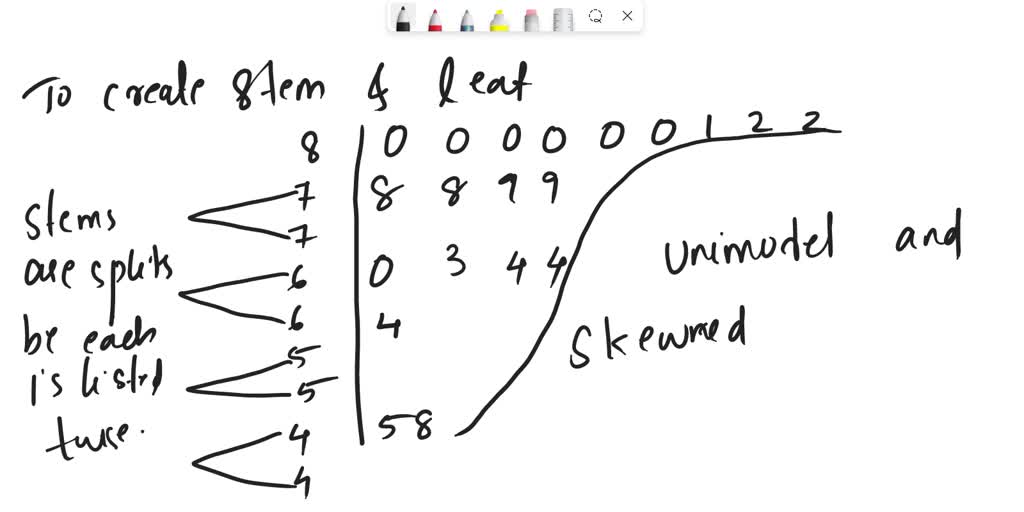 To create stem & leaf
8 | 0 0 0 0 0 0 1 2 2
7 | 8 8 9 9
7
6 | 0 3 4 4
6 | 4
5
5
4 | 5 8
4
stems
are splits
be each
is listed
twise.
unimodel and
skewmed